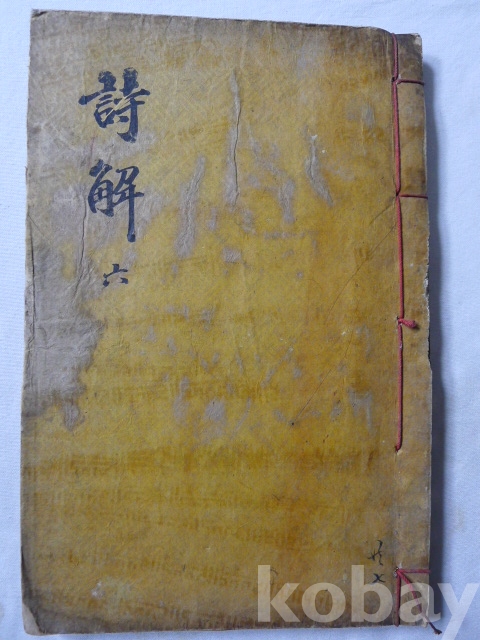 詩解
六
共七
kobay